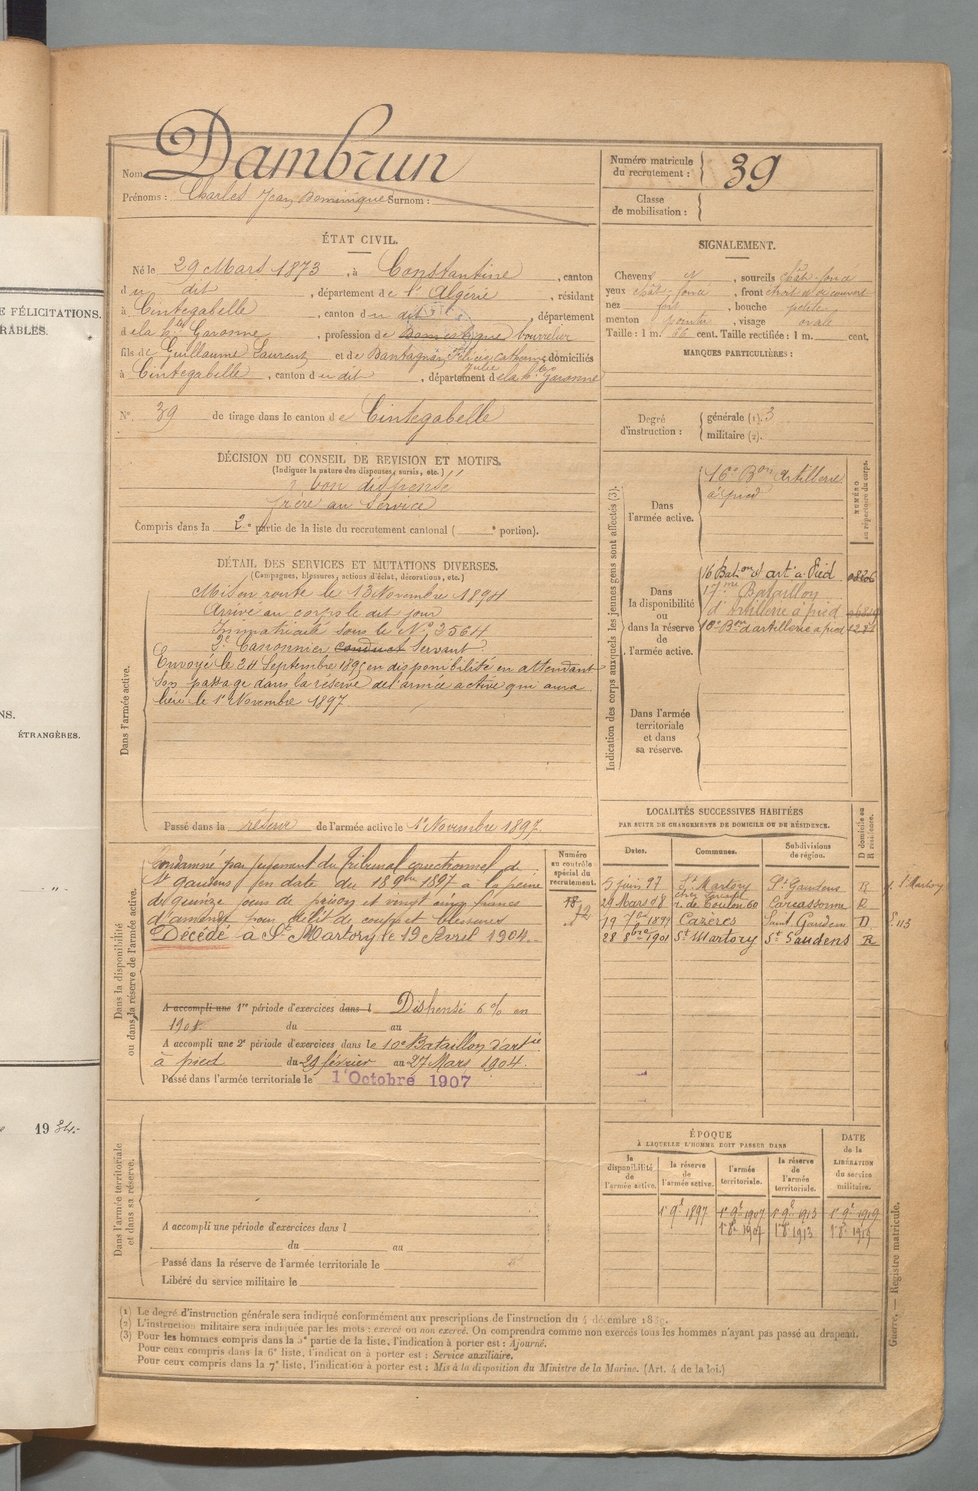 E FÉLICITATIONS.
RABLES.
NS.
ÉTRANGÈRES.
19
Nom Dambrun
Prénoms : Charles Jean Dominique Surnom :
Numéro matricule
du recrutement : 39
Classe
de mobilisation :
ÉTAT CIVIL.
Né le 29 Mars 1873, à Constantine, canton
du dit, département de l'Algérie, résidant
à Cintegabelle, canton du dit, département
de la hte Garonne, profession de Domestique bouvelier
fils de Guillaume Laurent et de Félicie Catherine domiciliés
Julie
à Cintegabelle, canton du dit, département de la hte Garonne
N° 39 de tirage dans le canton de Cintegabelle
SIGNALEMENT.
Cheveux, sourcils chât-foncé
yeux chât-foncé, front étroit et découvert
nez, bouche petite
menton pointu, visage ovale
Taille : 1 m. 66 cent. Taille rectifiée : 1 m. cent.
MARQUES PARTICULIÈRES :
Degré
d'instruction :
générale (1). 3
militaire (2).
DÉCISION DU CONSEIL DE REVISION ET MOTIFS.
(Indiquer la nature des dispenses, sursis, etc.)
bon dispensé
frère au service
Compris dans la 2e partie de la liste du recrutement cantonal ( e portion).
DÉTAIL DES SERVICES ET MUTATIONS DIVERSES.
(Campagnes, blessures, actions d'éclat, décorations, etc.)
Dans l'armée active.
Mis en route le 13 Novembre 1894
Arrivé au corps le dit jour
Immatriculé sous le N° 3564
2e Canonnier conduct servant
Envoyé le 24 Septembre 1895 en disponibilité en attendant
son passage dans la réserve de l'armée active qui aura
lieu le 1er Novembre 1897
Passé dans la réserve de l'armée active le 1er Novembre 1897.
Indication des corps auxquels les jeunes gens sont affectés (3).
NUMÉRO
au répertoire du corps.
Dans
l'armée active.
16e Bon artillerie
à pied
Dans
la disponibilité
ou
dans la réserve
de
l'armée active.
16 Bationd'art à Pied
17me Bataillon
d'artillerie à pied
10e Bon d'artillerie à pied
Dans l'armée
territoriale
et dans
sa réserve.
Dans la disponibilité
ou dans la réserve de l'armée active.
Condamné par jugement du tribunal correctionnel de
St gaudens en date du 18 9bre 1897 à la peine
de quinze jours de prison et vingt cinq francs
d'amende pour délit de coups et blessures
Décédé à St Martory le 19 Avril 1904.
Numéro
au contrôle
spécial du
recrutement.
A accompli une 1re période d'exercices dans l Dispensé 6% en
1901 du au
A accompli une 2e période d'exercices dans le 10e Bataillon d'artie
à pied du 29 février au 27 Mars 1904.
Passé dans l'armée territoriale le 1er Octobre 1907
LOCALITÉS SUCCESSIVES HABITÉES
PAR SUITE DE CHANGEMENTS DE DOMICILE OU DE RÉSIDENCE.
D domicile ou
R résidence.
Dates. Communes. Subdivisions
de région.
5 juin 97 St Martory St Gaudens R
24 Mars 98 r. de Toulon 60 Carcassonne R
19 7bre 1899 Cazères Saint Gaudens D
28 8bre 1901 St Martory St Gaudens R
St Martory
ÉPOQUE
À LAQUELLE L'HOMME DOIT PASSER DANS
la
disponibilité
de
l'armée active.
la réserve
de
l'armée active.
l'armée
territoriale.
la réserve
de
l'armée
territoriale.
DATE
de la
LIBÉRATION
du service
militaire.
1er 9bre 1897 1er 9bre 1907 1er 9bre 1913 1er 9bre 1919
1er 8bre 1907 1er 8bre 1913 1er 8bre 1919
Dans l'armée territoriale
et dans sa réserve.
A accompli une période d'exercices dans l
du au
Passé dans la réserve de l'armée territoriale le
Libéré du service militaire le
Guerre. — Registre matricule.
(1) Le degré d'instruction générale sera indiqué conformément aux prescriptions de l'instruction du 4 décembre 1889.
(2) L'instruction militaire sera indiquée par les mots : exercé ou non exercé. On comprendra comme non exercés tous les hommes n'ayant pas passé au drapeau.
(3) Pour les hommes compris dans la 5e partie de la liste, l'indication à porter est : Ajourné.
Pour ceux compris dans la 6e liste, l'indication à porter est : Service auxiliaire.
Pour ceux compris dans la 7e liste, l'indication à porter est : Mis à la disposition du Ministre de la Marine. (Art. 4 de la loi.)